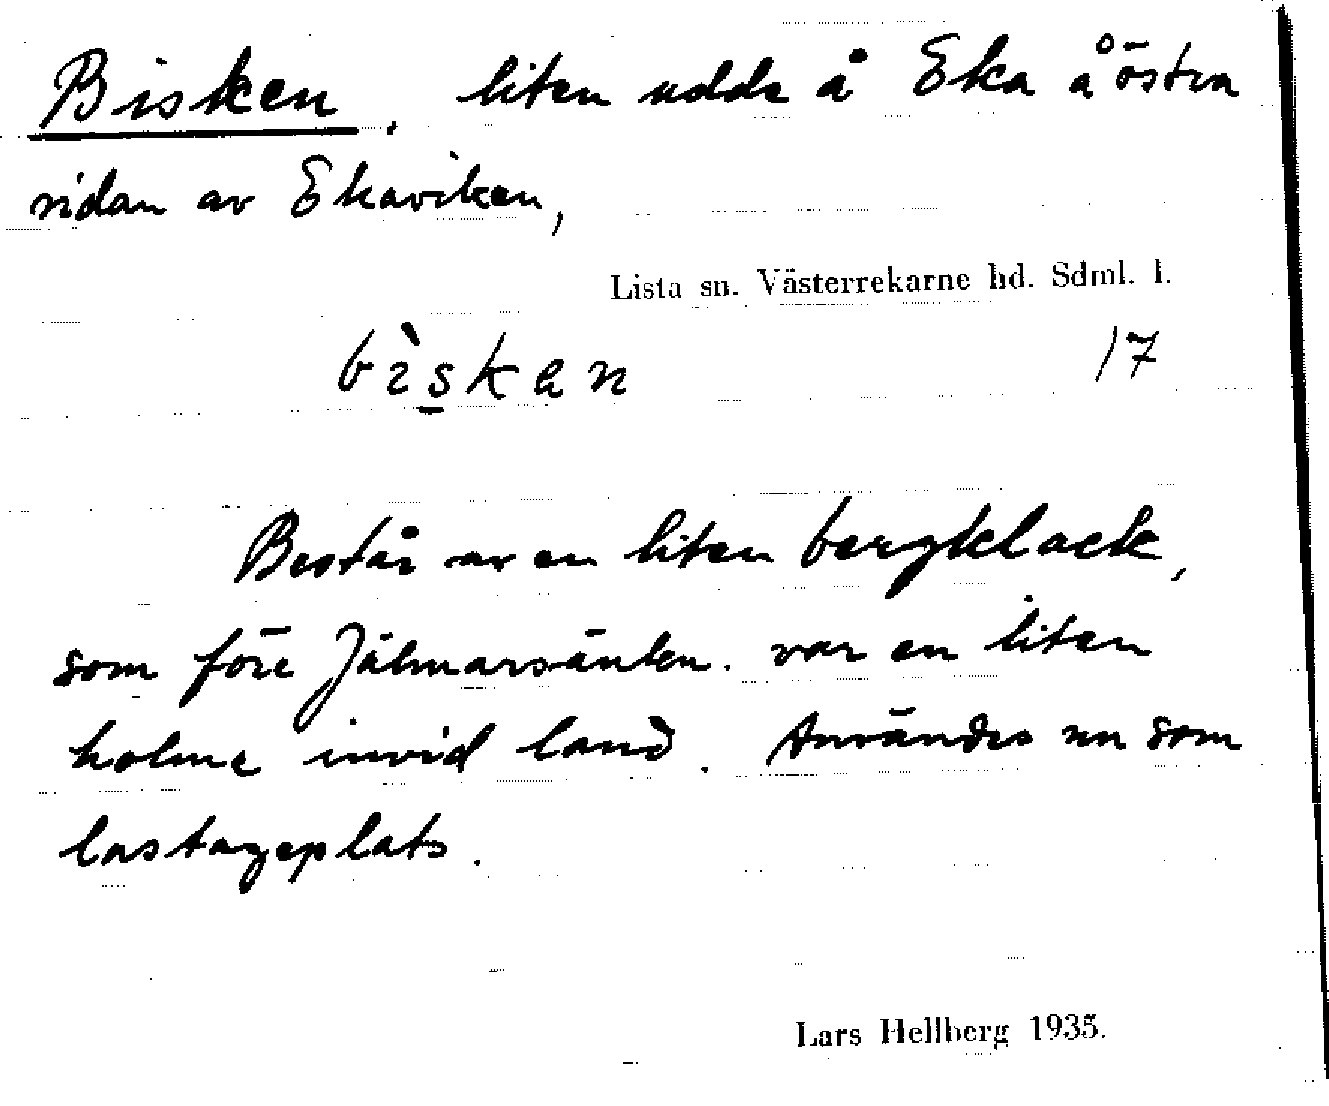 Bisken, liten udde å Eka å östra
sidan av Ekaviken,
Lista sn. Västerrekarne hd. Sdml. l.
bìskan 17
Består av en liten bergklack,
som före Jälmarsänkn. var en liten
holme invid land. Användes nu som
lastageplats.
Lars Hellberg 1935.